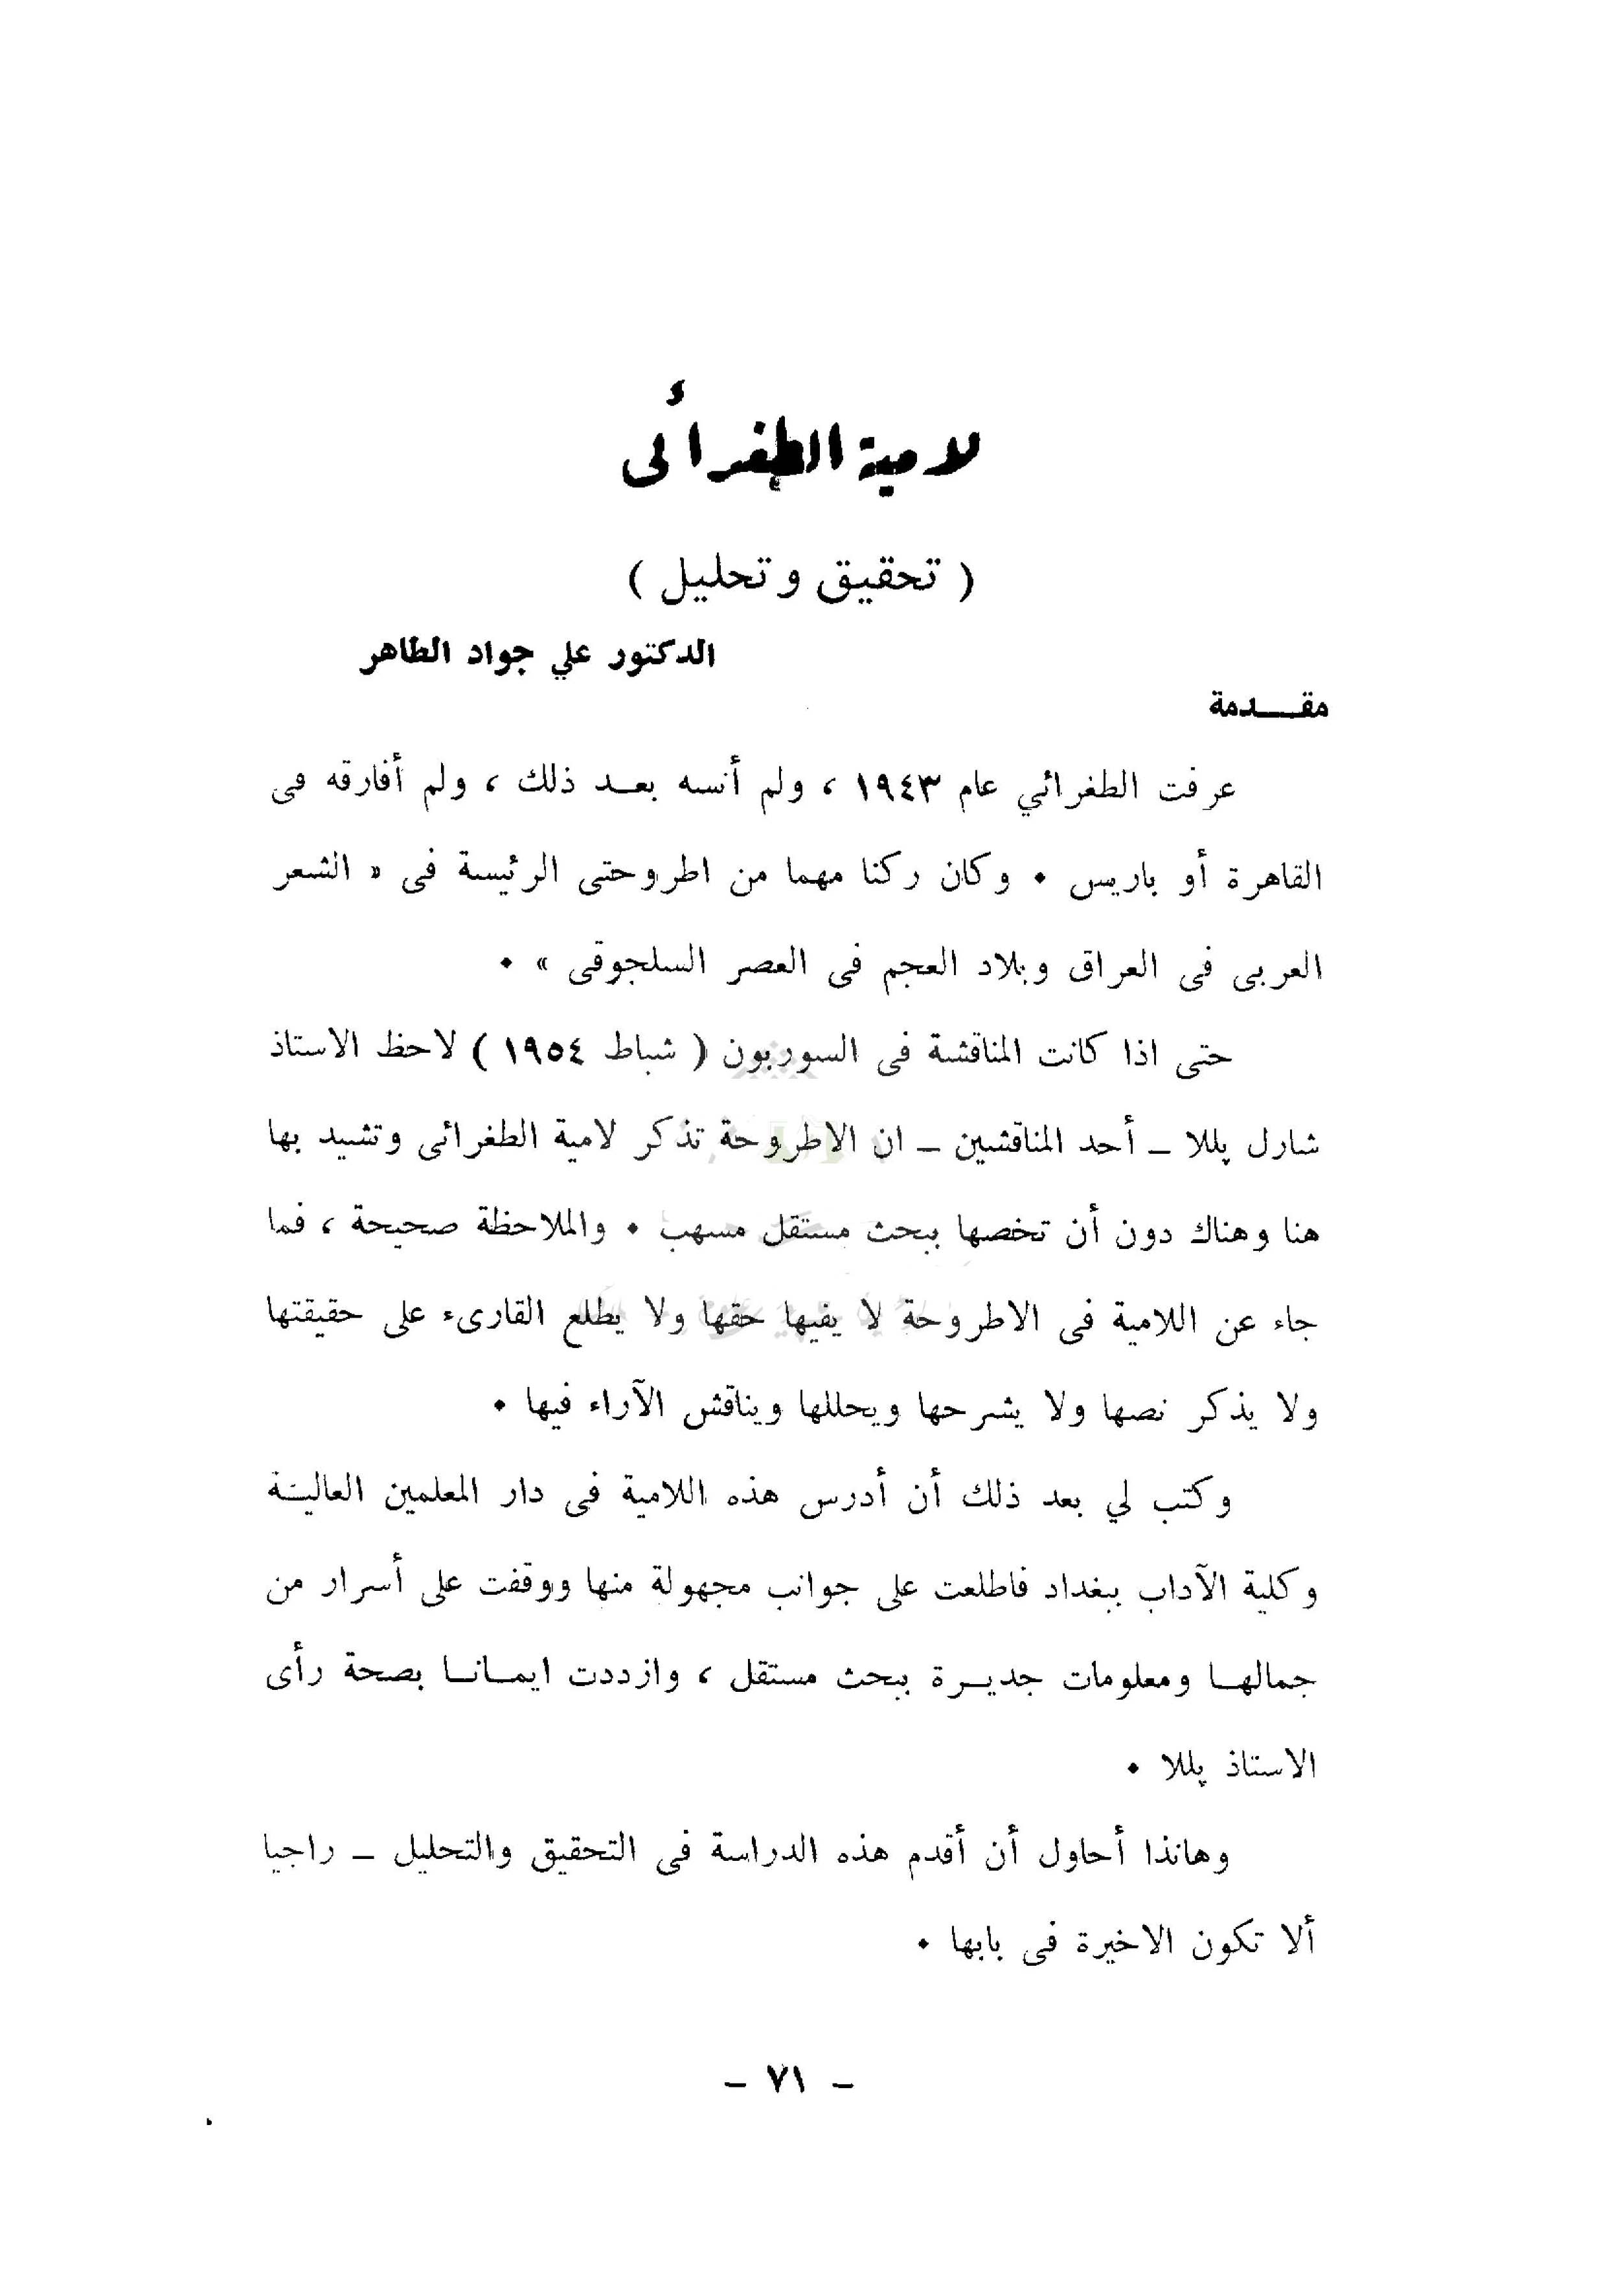 لامية الطغرائى
( تحقيق وتحليل )
الدكتور علي جواد الطاهر
مقـــدمة
عرفت الطغرائي عام ١٩٤٣ ، ولم أنسه بعـد ذلك ، ولم أفارقه فى
القاهرة أو باريس ٠ وكان ركنا مهما من اطروحتى الرئيسة فى « الشعر
العربى فى العراق وبلاد العجم فى العصر السلجوقى » ٠
حتى اذا كانت المناقشة فى السوربون ( شباط ١٩٥٤ ) لاحظ الاستاذ
شارل پللا ـ أحد المناقشين ـ ان الاطروحة تذكر لامية الطغرائى وتشيد بها
هنا وهناك دون أن تخصها ببحث مستقل مسهب ٠ والملاحظة صحيحة ، فما
جاء عن اللامية فى الاطروحة لا يفيها حقها ولا يطلع القارىء على حقيقتها
ولا يذكر نصها ولا يشرحها ويحللها ويناقش الآراء فيها ٠
وكتب لي بعد ذلك أن أدرس هذه اللامية فى دار المعلمين العاليـة
وكلية الآداب ببغداد فاطلعت على جوانب مجهولة منها ووقفت على أسرار من
جمالهـا ومعلومات جديـرة ببحث مستقل ، وازددت ايمـانـا بصحة رأى
الاستاذ پللا ٠
وهانذا أحاول أن أقدم هذه الدراسة فى التحقيق والتحليل ـ راجيا
ألا تكون الاخيرة فى بابها ٠
ـ ٧١ ـ